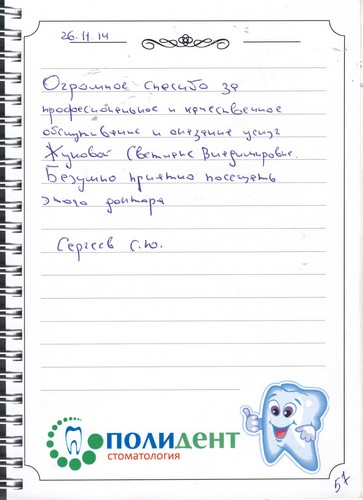 26.11.14
Огромное спасибо за
профессиональное и качественное
обслуживание и оказание услуг
Жуковой Светлане Владимировне.
Безумно приятно посещать
этого доктора
Сергеев С.Ю.
ПОЛИДЕНТ
СТОМАТОЛОГИЯ